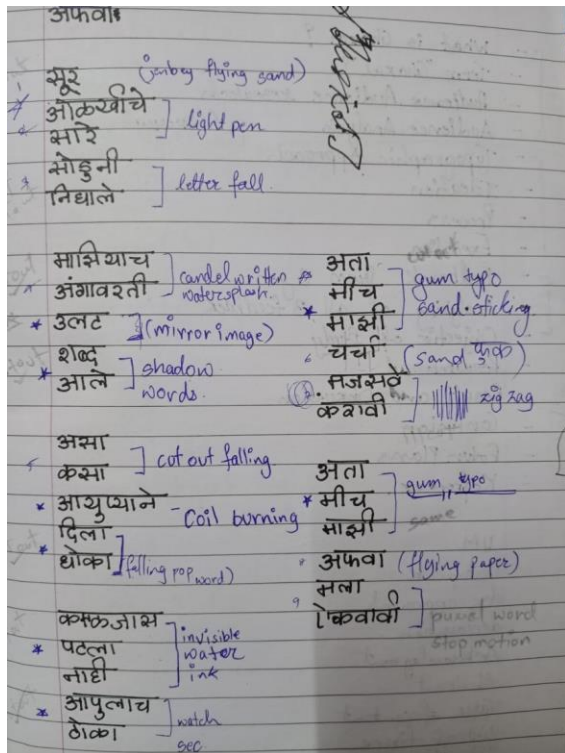 अफवा
सूर (jenbey flying sand)
ओळखीचे
सारे
light pen
सोडुनी
निघाले
letter fall
माझियाच
अंगावरती
candel written
watersplash.
उलट (mirror image)
शब्द
आले
shadow
words.
असा
कसा
cut out falling
आयुष्याने
दिला
Coil burning
धोका
(falling pop word)
काळजास
पटला
नाही
invisible
water
ink
आपुलाच
ठोका
watch
sec
अता
मीच
माझी
gum typo
sand sticking
चर्चा (sand फुक)
मजसवे
करावी
zig zag
अता
मीच
माझी
gum typo
same
अफवा (flying paper)
मला
ऐकवावी
puzzel word
stop motion